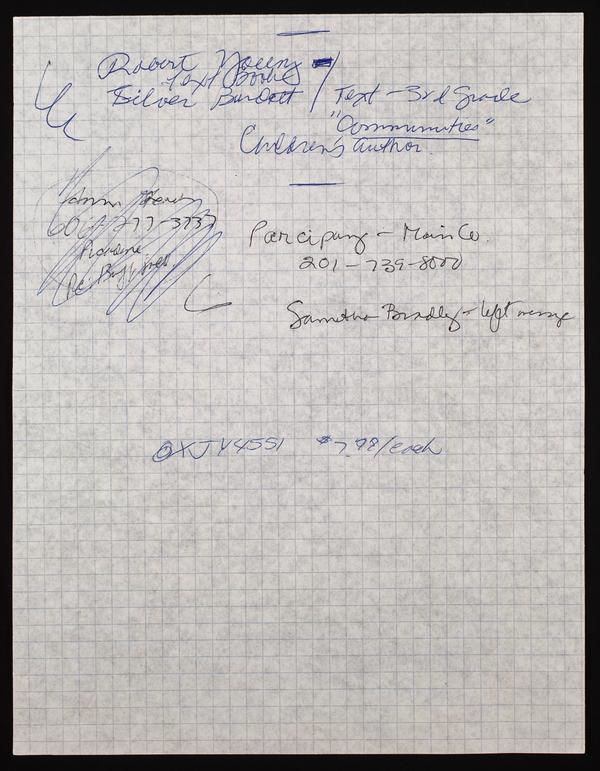 Robert Young
Text Books
Silver Burdett / Text - 3rd Grade
"Communities"
Children's Author
606-277-3737
Parcipany - Main Co.
201-739-8000
Samantha Bradley - left message
@XJY4551 $7.98/each